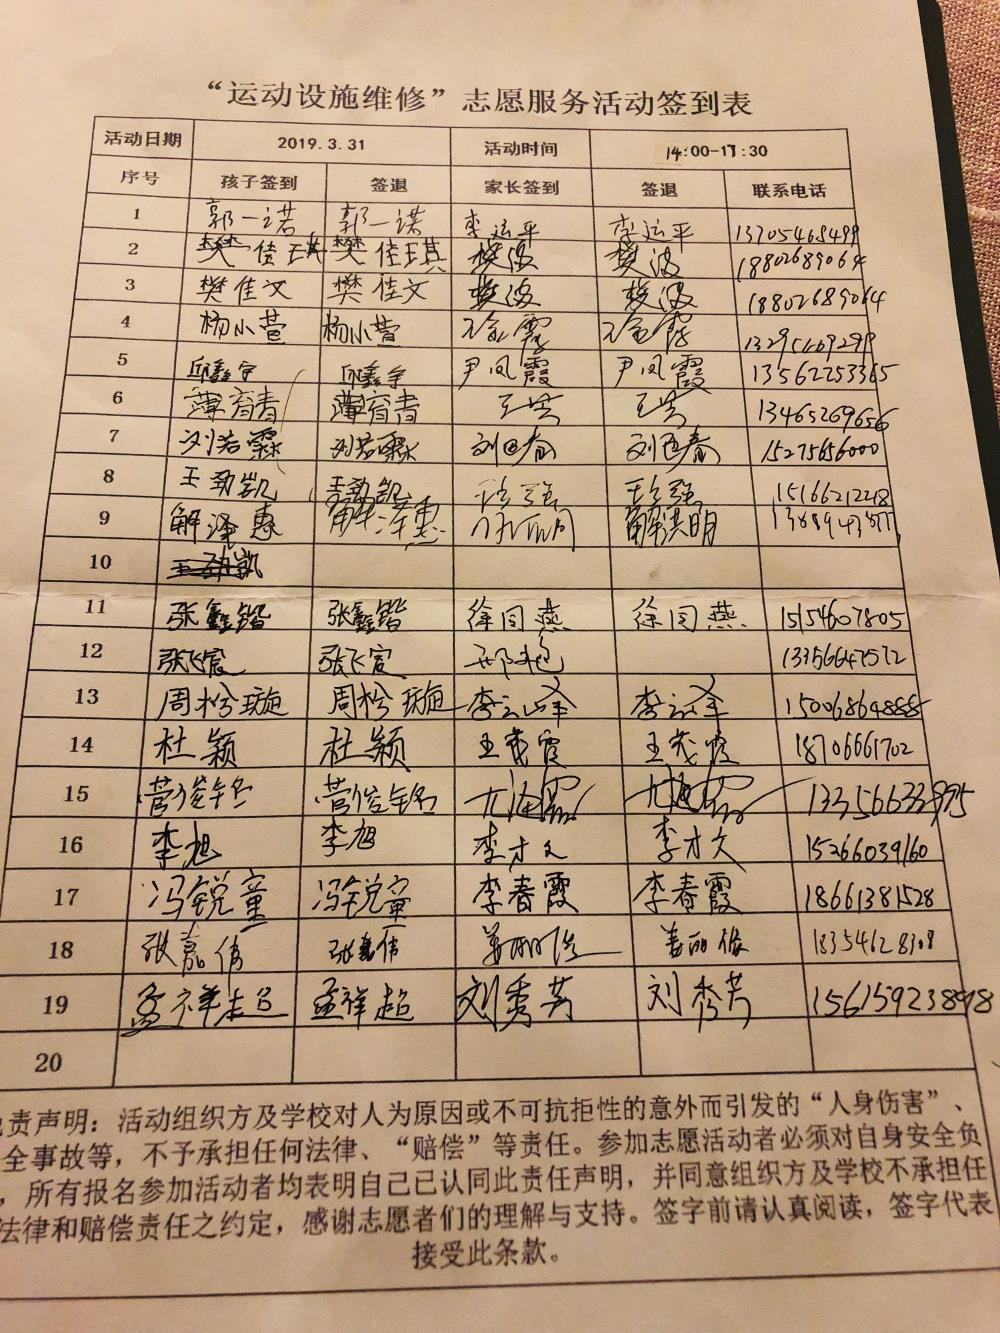 “运动设施维修”志愿服务活动签到表
活动日期 2019.3.31 活动时间 14:00-17:30
序号 孩子签到 签退 家长签到 签退 联系电话
1 郭一诺 郭一诺 李运平 李运平 13705468499
2 樊佳琪 樊佳琪 樊波 樊波 18802689064
3 樊佳文 樊佳文 樊波 樊波 18802689064
4 杨小萱 杨小萱
5 邱鑫宇 邱鑫宇 尹凤霞 尹凤霞 13562253365
6 薄育青 薄育青 13465269656
7 刘若霖 刘若霖 15275656000
8 王劲凯 王劲凯 15166212218
9 解泽惠 解泽惠 解洪明
10 王劲凯
11 张鑫锴 张鑫锴 徐同燕 徐同燕 15154607805
12 张飞宸 张飞宸 邢艳 13356647572
13 周松璇 周松璇 李云峰 李云峰 15006864888
14 杜颖 杜颖 王茂霞 王茂霞 18706661702
15 菅俊铭 菅俊铭 尤海霞 尤海霞 13356633995
16 李旭 李旭 李才文 李才文 15266039160
17 冯锐童 冯锐童 李春霞 李春霞 18661381528
18 张嘉倩 张嘉倩 姜丽俊 姜丽俊 18354628308
19 孟祥超 孟祥超 刘秀芳 刘秀芳
20
责声明：活动组织方及学校对人为原因或不可抗拒性的意外而引发的“人身伤害”、
全事故等，不予承担任何法律、“赔偿”等责任。参加志愿活动者必须对自身安全负
，所有报名参加活动者均表明自己已认同此责任声明，并同意组织方及学校不承担任
法律和赔偿责任之约定，感谢志愿者们的理解与支持。签字前请认真阅读，签字代表
接受此条款。